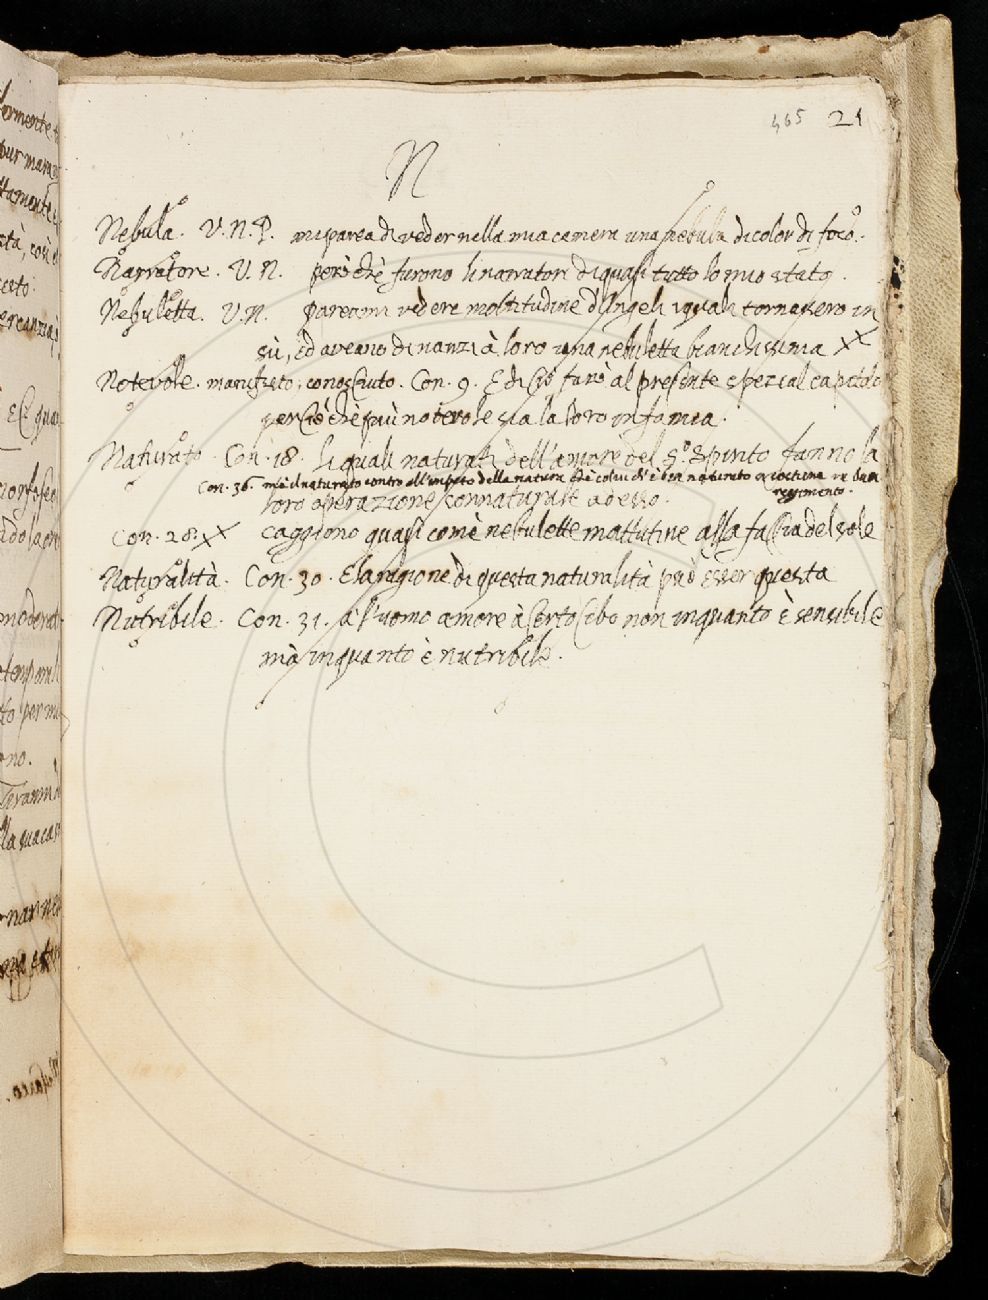 465 21
N
Nebula. V.N.P. mi parea di veder nella mia camera una nebula di color di foco.
Narratore. V.N. però chè furono li narratori di quasi tutto lo mio stato.
Nebuletta. V.N. pareami vedere moltitudine d'Angeli i quali tornassero in
sù, ed aveano dinanzi à loro una nebuletta bianchissima XX
Notevole. manifesto, conosciuto. Con. 9. E di ciò farò al presente spezial capitolo
perciò chè più notevole sia la loro infamia.
Naturato. Con. 18. li quali naturati dell'amore del S.º Spirito fanno la
Con. 36. mà il naturato contro all'impeto della natura chè colui ch'è ben naturato
regimento.
loro operazione connaturale ad esso.
Con. 28. XX caggiono quasi come nebulette mattutine alla faccia del sole
Naturalità. Con. 30. E la ragione di questa naturalità può esser questa
Nutribile. Con. 31. à l'uomo amore à certo cibo non inquanto è sensibile
mà inquanto è nutribile.
ormente
pur
tamente
stà, così
certo:
E
no.
la sua